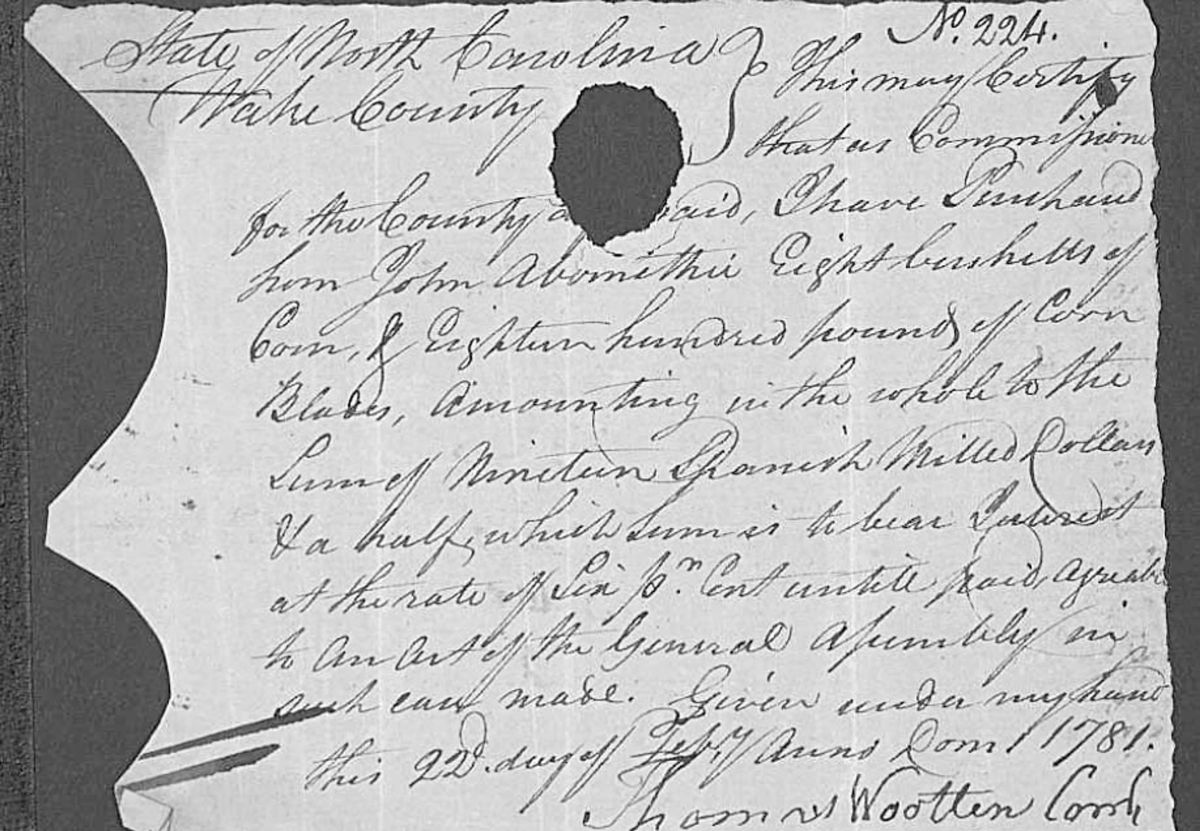 No. 224.
State of North Carolina
Wake County
This may Certify
that as Commissione
for the County aid, I have Purchased
from John Abornithie Eight bushells of
Corn, & Eighteen hundred pounds of Corn
Blades, Amounting in the whole to the
Sum of Nineteen Spanish Milled Dollars
& a half, which sum is to bear Interest
at the rate of Six pr. Cent untill paid, agreabl
to an Act of the General Assembly in
such case made. Given under my hand
this 22d. day of Feby Anno Dom 1781.
Thomas Wootten Comr